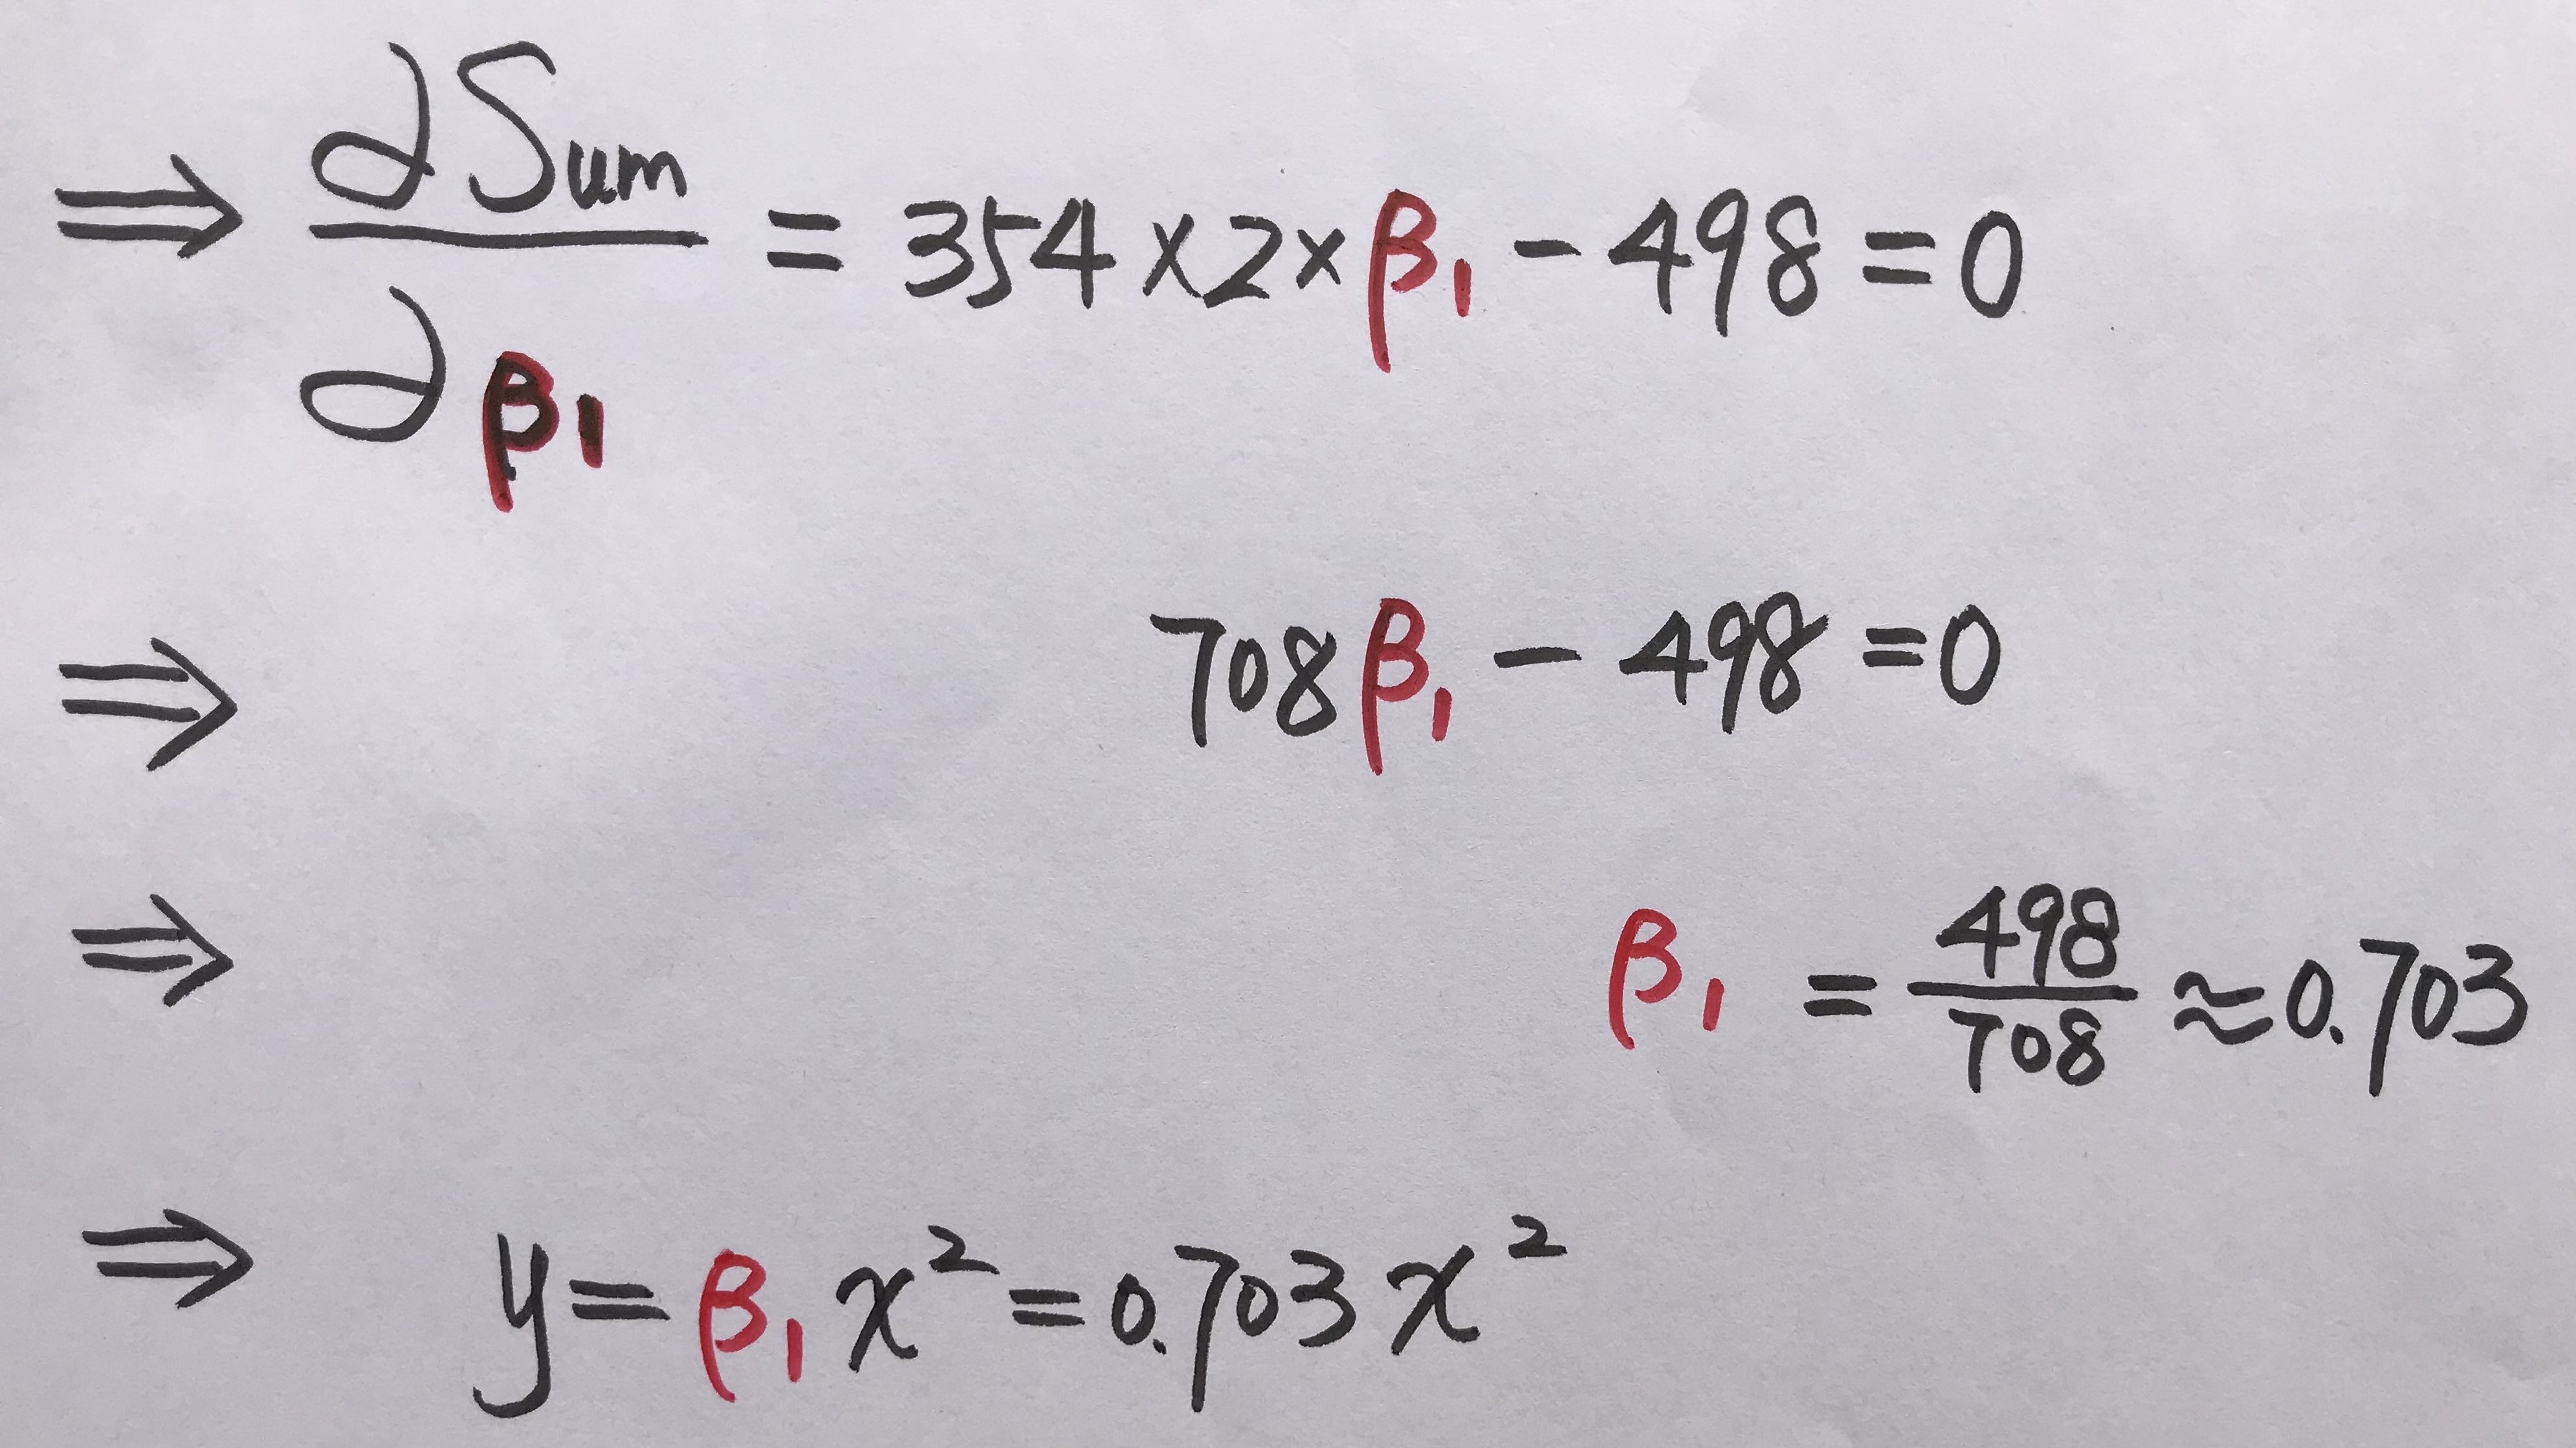 ⇒ ∂Sum/∂β₁ = 354×2×β₁ − 498 = 0
⇒ 708β₁ − 498 = 0
⇒ β₁ = 498/708 ≈ 0.703
⇒ y = β₁x² = 0.703x²